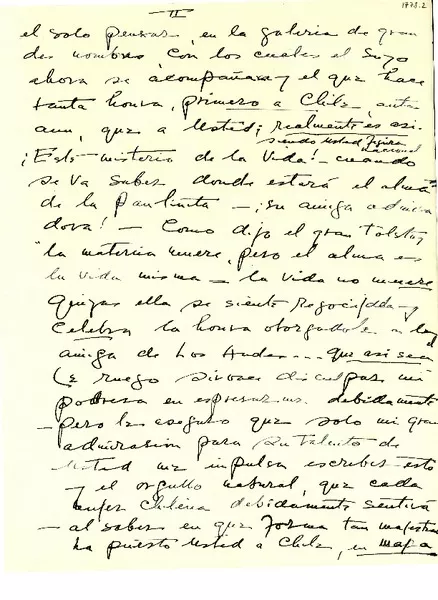 II
1978.2
el solo pensar, en la galeria de gran
des nombres, con los cuales el Suyo
ahora se acompañara y el que hace
tanta honra, primero a Chile, antes
aun, que a Usted; realmente es asi.
siendo Usted figura nacional
¡Este misterio de la Vida! - cuando
se va saber donde estará el alma
de la Paulinta - ¡su amiga admira
dora! - Como dijo el gran Tolstoy
"la materia muere, pero el alma es
la vida misma - la vida no muere
Quizas ella se siente regocijada y
Celebra la honra otorgadole a la
amiga de Los Andes... que asi sea
Le ruego sirvase disculpar mi
pobreza en espresarme debidamente
- pero le aseguro que solo mi gran
admirasion para su talento de
Usted me impulsa escribir esto
- y el orgullo natural, que cada
mujer Chilena debidamente sentirá
- al saber en que forma tan majestuosa
ha puesto Usted a Chile, en mapa